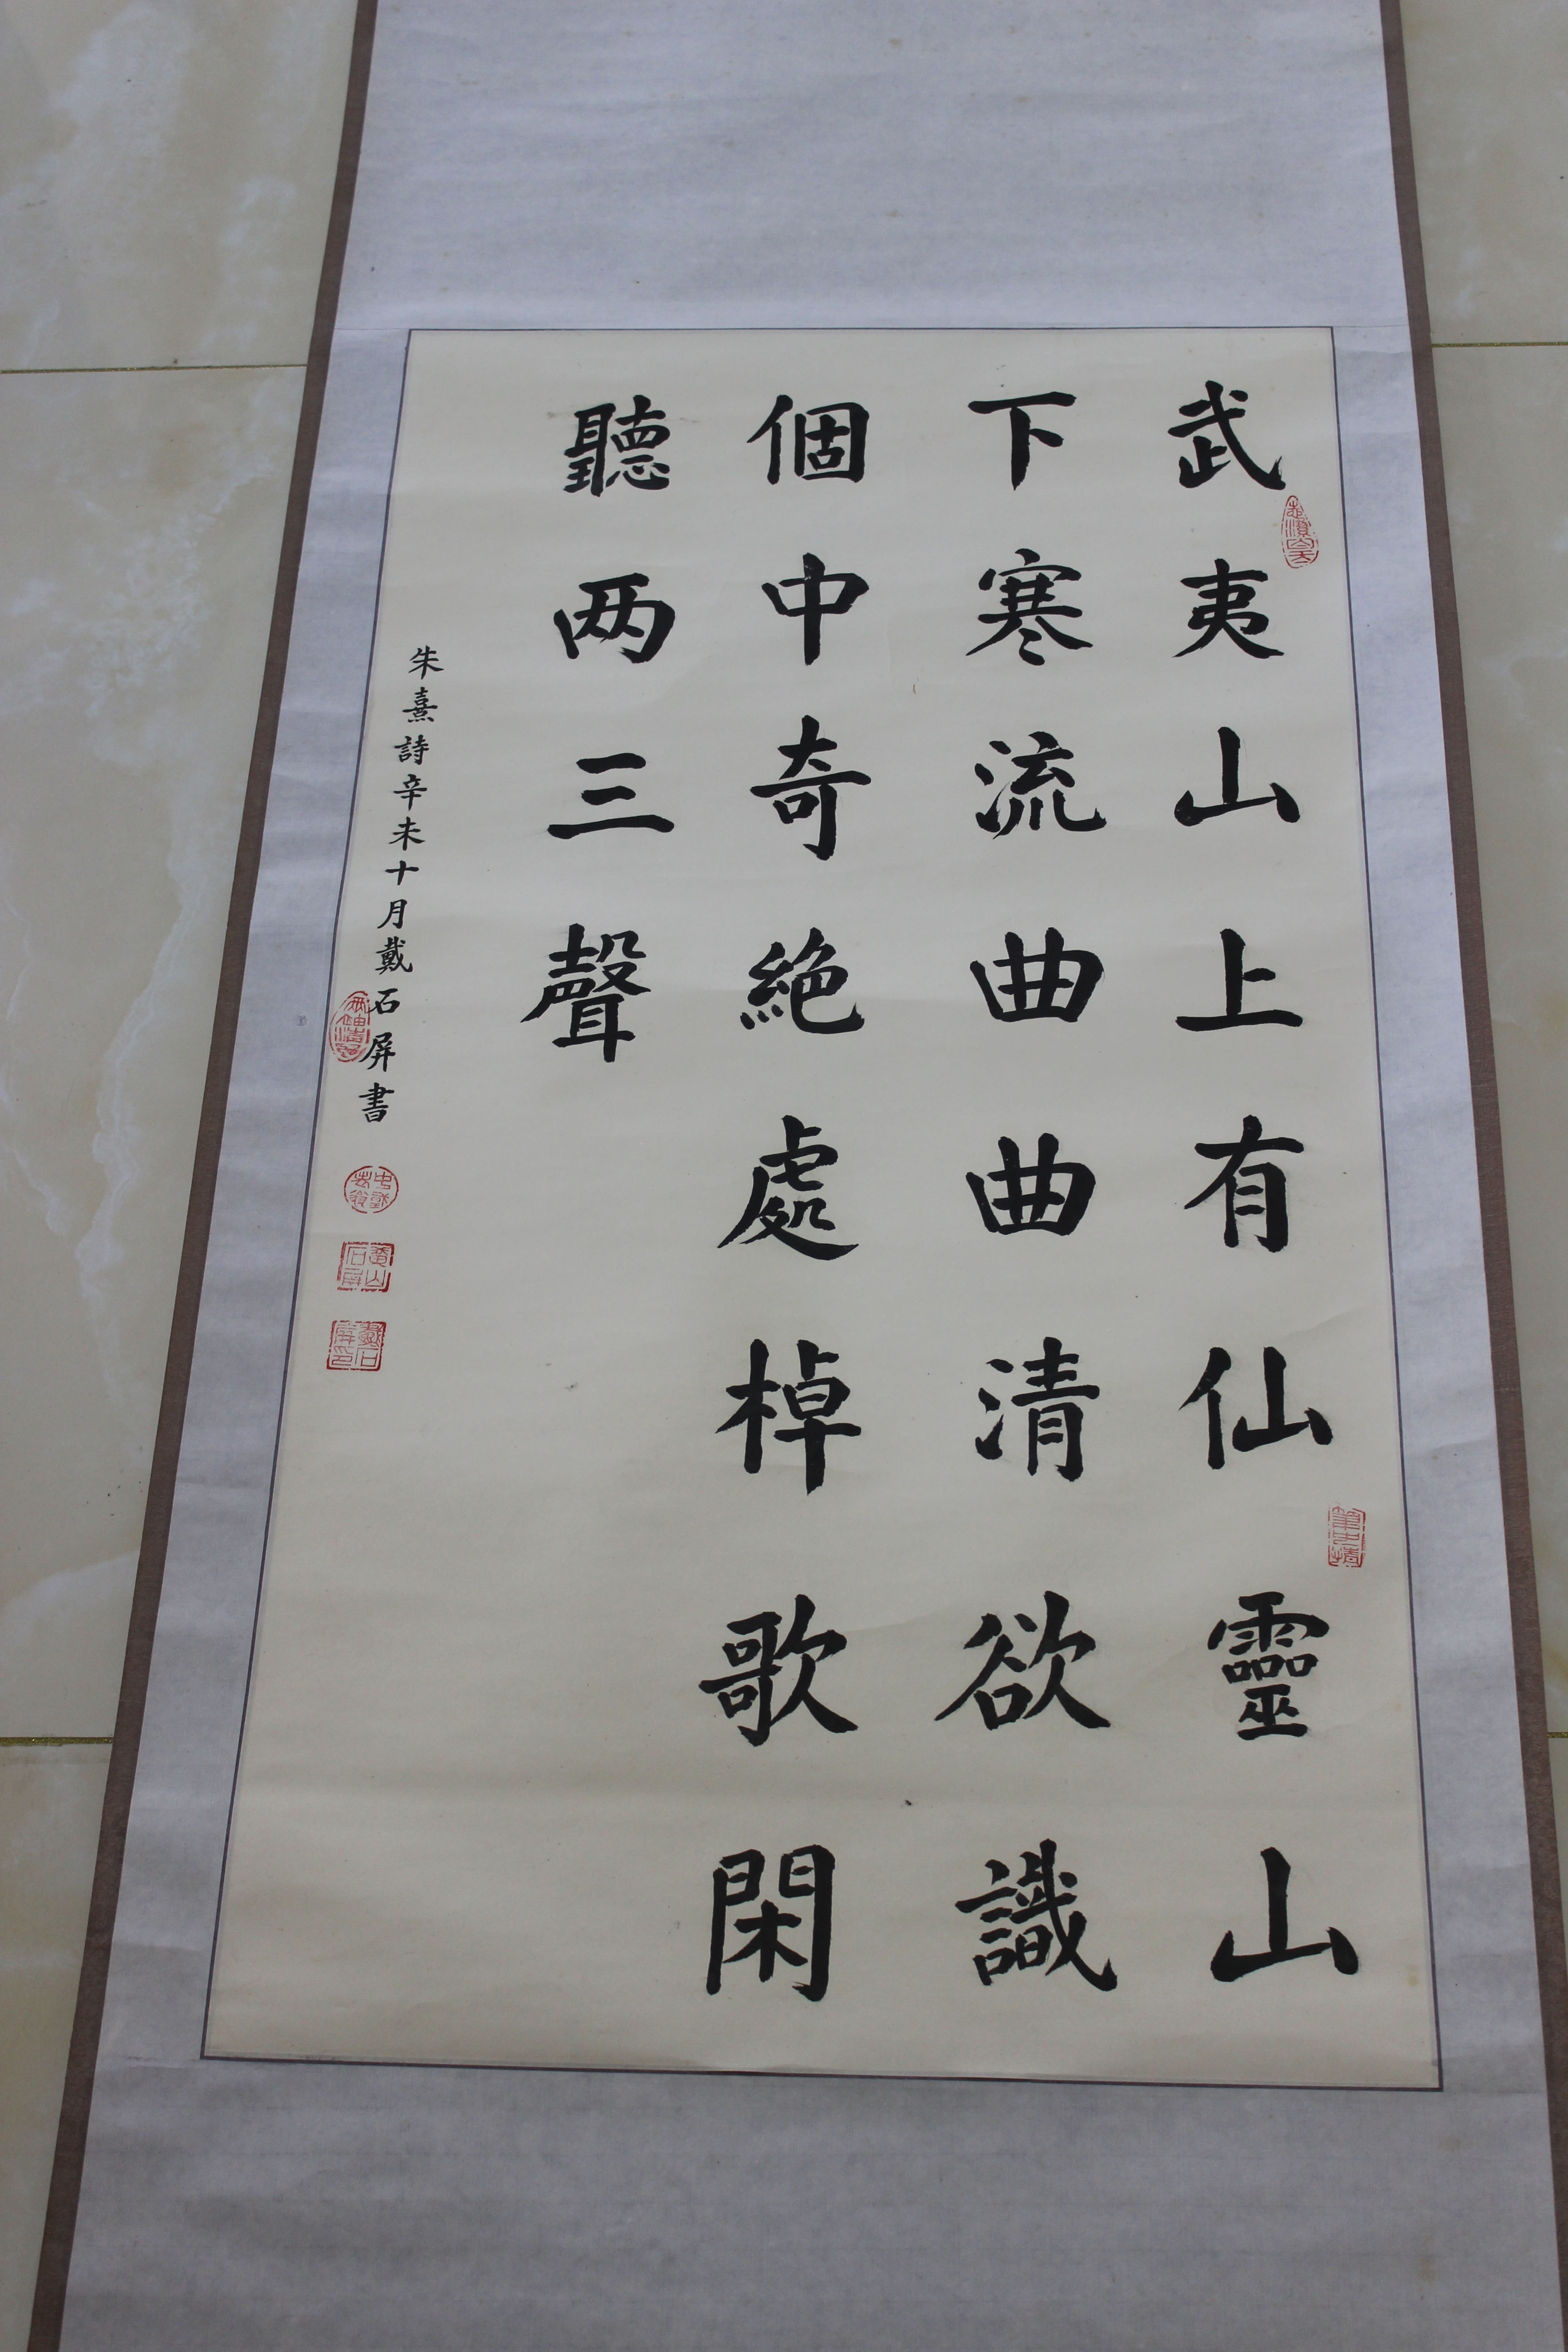 武夷山上有仙靈山
下寒流曲曲清欲識
個中奇絶處棹歌閑
聽两三聲
朱熹詩辛未十月戴石屏書
戴石屏印